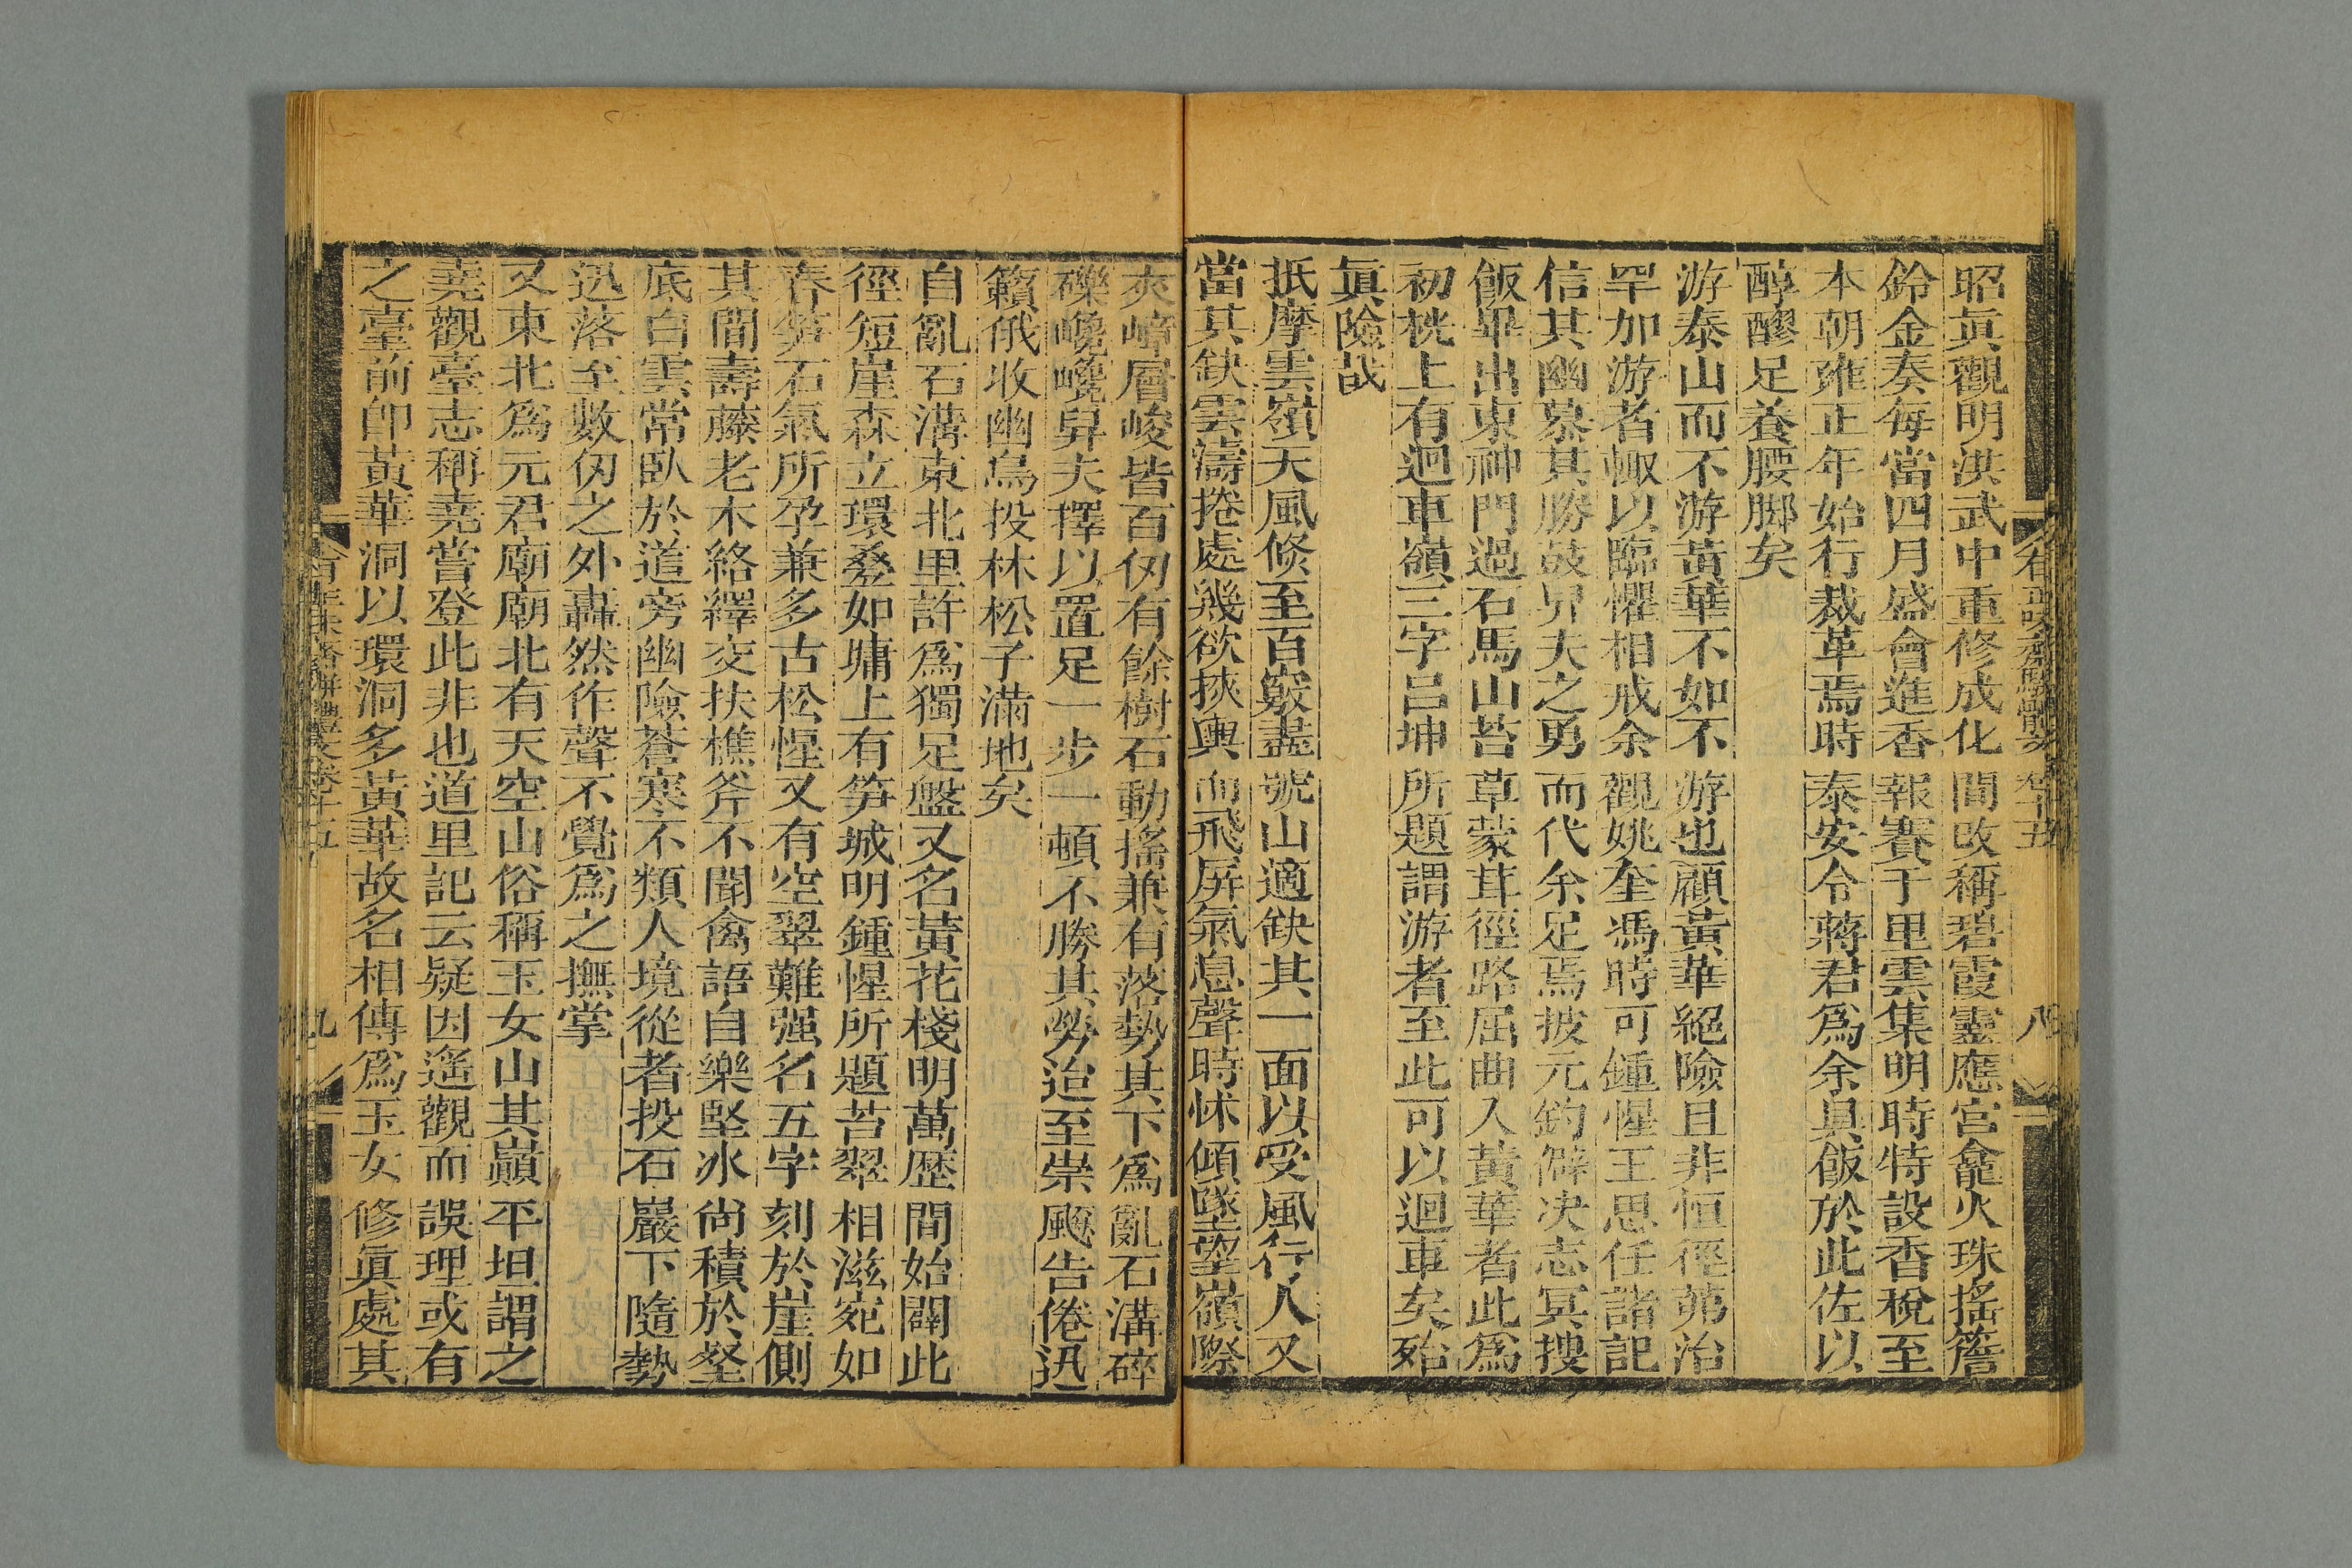 昭眞觀明洪武中重修成化間改稱碧霞靈應宮龕火珠搖簷
鈴金奏每當四月盛會進香報賽千里雲集明時特設香稅至
本朝雍正年始行裁革焉時泰安令蔣君爲余具飯於此佐以
醇醪足養腰脚矣
游泰山而不游黃華不如不游也顧黃華絕險且非恒徑茀治
罕加游者輙以臨懼相戒余觀姚奎馮時可鍾惺王思任諸記
信其幽慕其勝鼓舁夫之勇而代余足焉披元鈞僻决志冥搜
飯畢出東神門過石馬山苔草蒙茸徑路屈曲入黃華者此爲
初桄上有迴車嶺三字吕坤所題謂游者至此可以迴車矣殆
眞險哉
抵摩雲嶺天風倏至百竅盡號山適缺其一面以受風行人又
當其缺雲濤捲處幾欲挾輿而飛屏氣息聲時怵傾墜望嶺際
夾﨑層峻皆百仞有餘樹石動搖兼有落勢其下爲亂石溝碎
礫巉巉舁夫擇以置足一步一頓不勝其勞迨至祟颷告倦迅
籟俄收幽鳥投林松子滿地矣
自亂石溝東北里許爲獨足盤又名黃花棧明萬歷間始闢此
徑短崖森立環叠如墉上有笋城明鍾惺所題苔翠相滋宛如
春笋石氣所孕兼多古松惺又有空翠難强名五字刻於崖側
其間壽藤老木絡繹交扶樵斧不聞禽語自樂堅冰尙積於壑
底白雲常臥於道旁幽險蒼寒不類人境從者投石巖下隨勢
迅落至數仞之外轟然作聲不覺爲之撫掌
又東北爲元君廟廟北有天空山俗稱玉女山其巓平坦謂之
堯觀臺志稱堯嘗登此非也道里記云疑因遙觀而誤理或有
之臺前卽黃華洞以環洞多黃華故名相傳爲玉女修眞處其